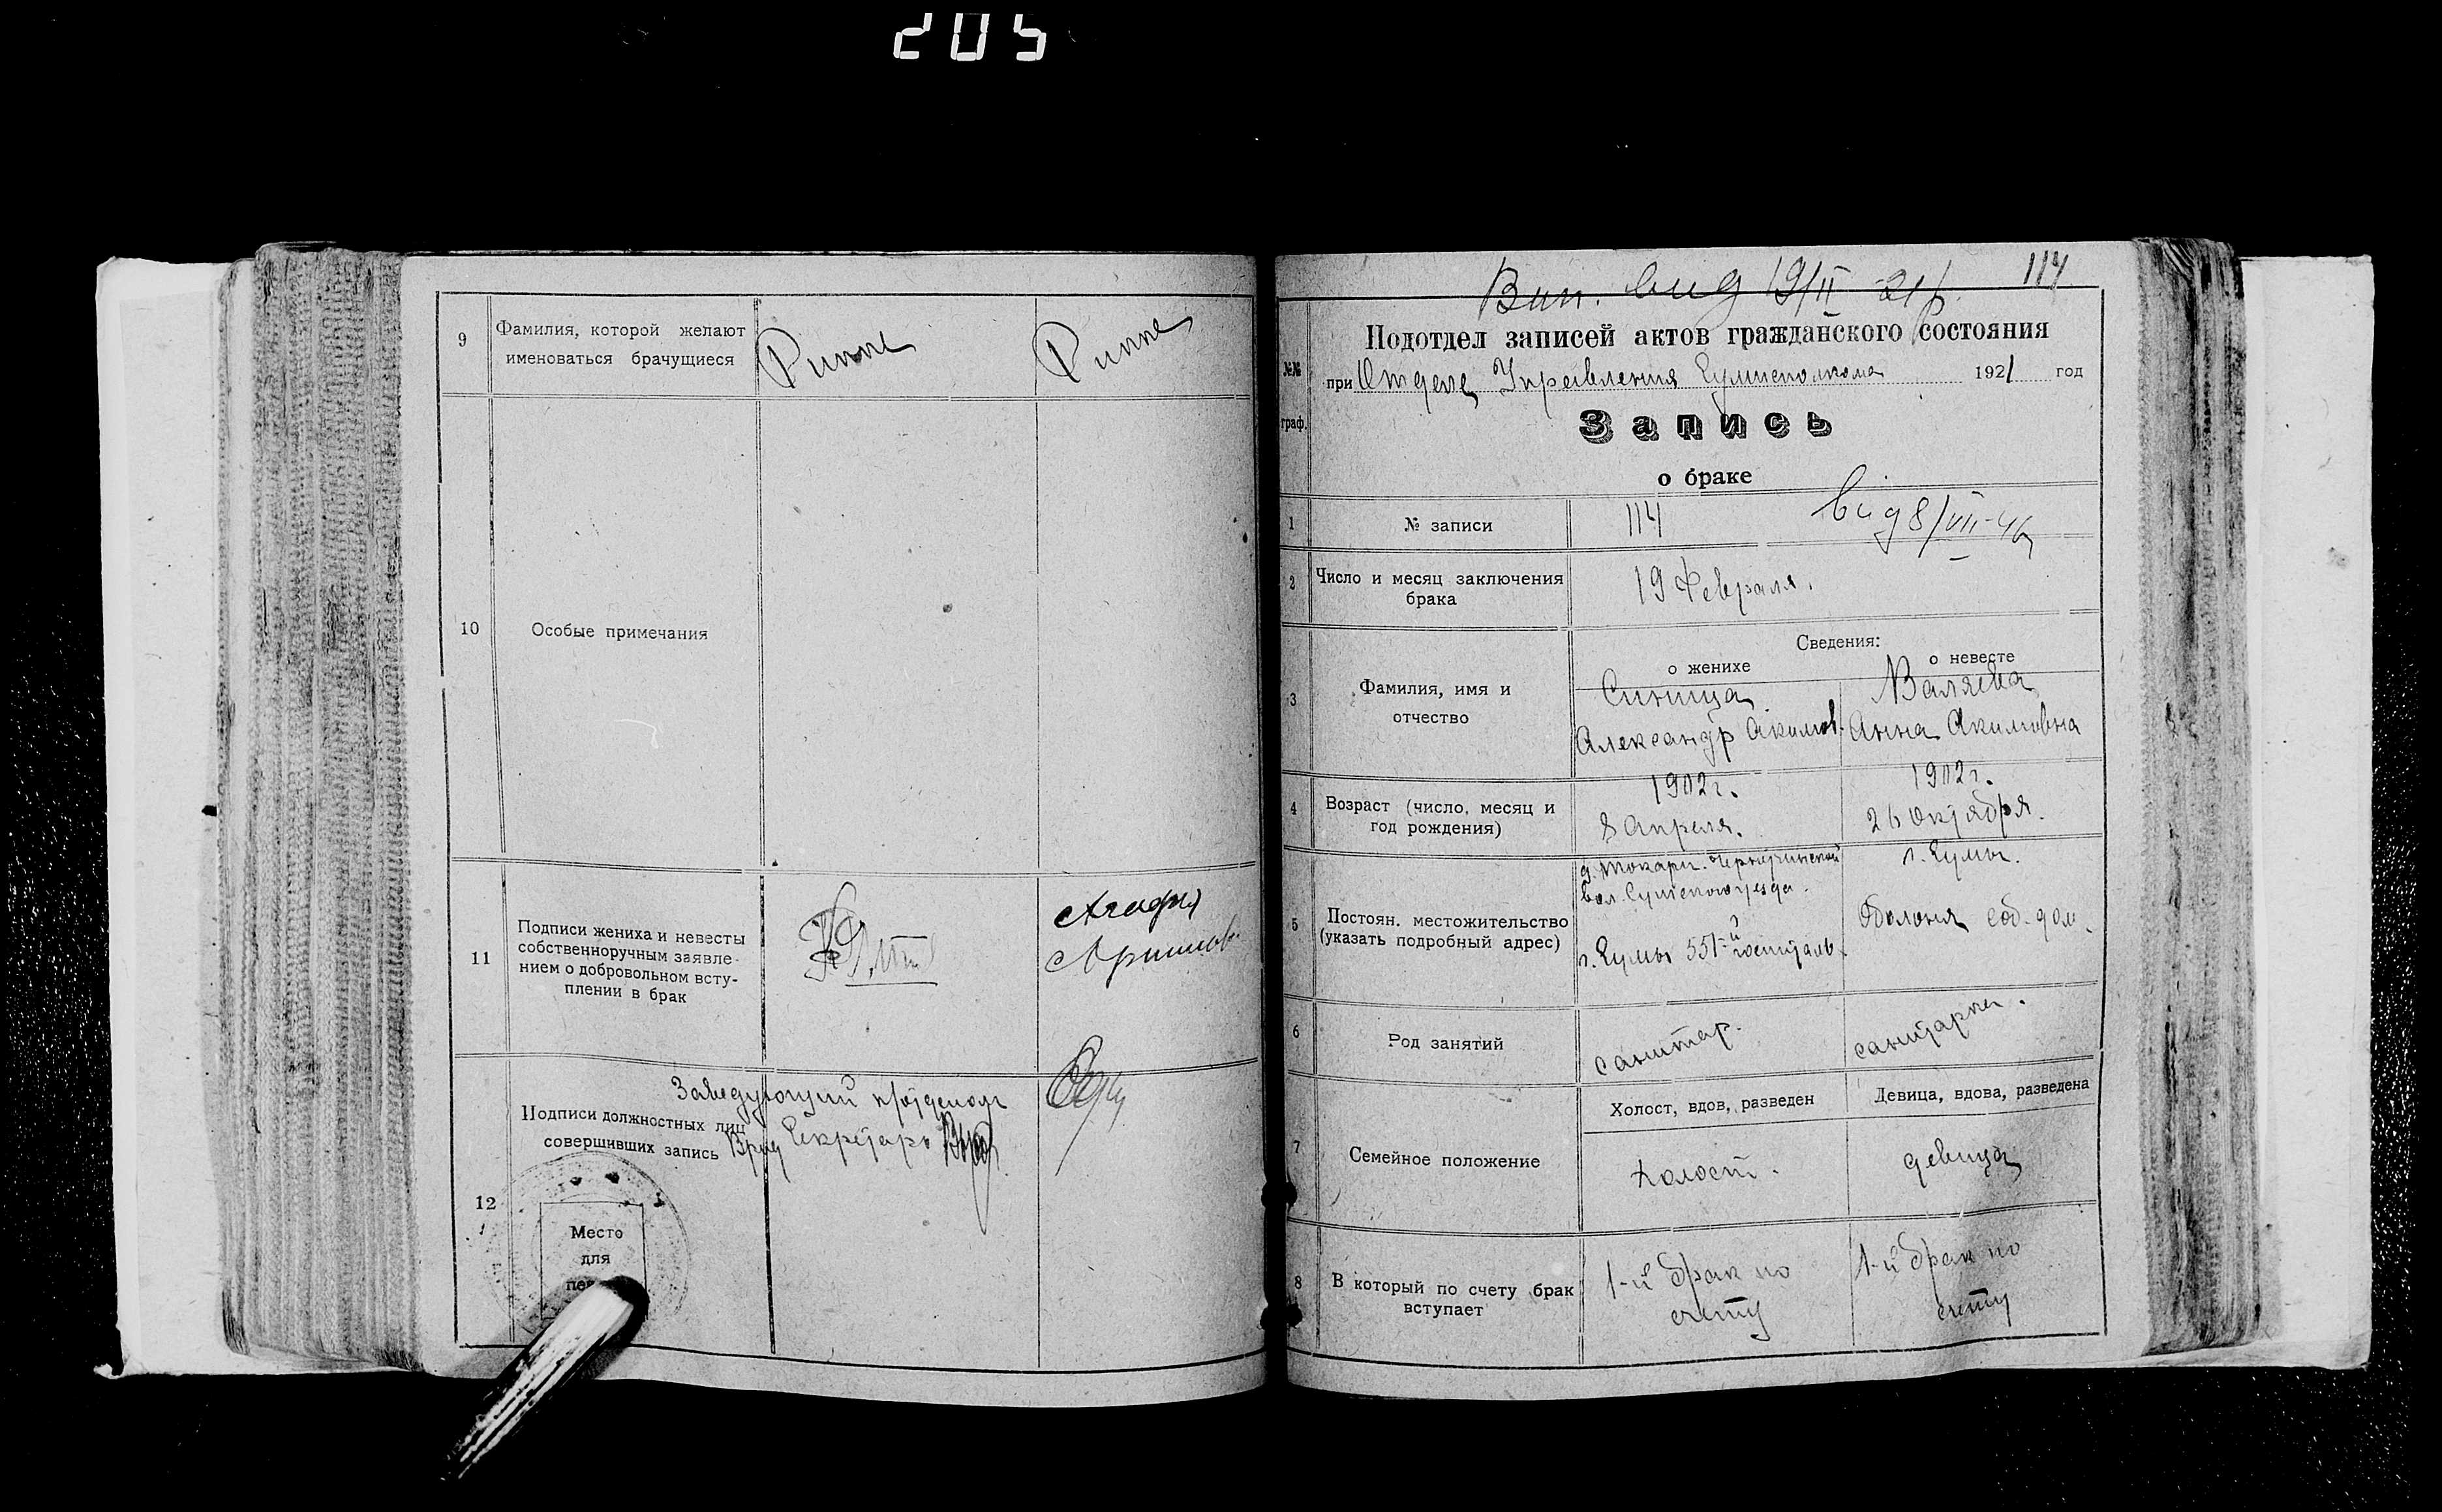 205
9
Фамилия, которой желают
именоваться брачущиеся
Ринне
Ринне
10
Особые примечания
11
Подписи жениха и невесты
собственноручным заявле-
нием о добровольном всту-
плении в брак
Агафия
12
Заведующий п/отделом
Подписи должностных лиц
совершивших запись
Врид Секретарь
Место
для
114
Вып. вид 19/II 21 г.
№№
граф.
Подотдел записей актов гражданского состояния
при Отделе Управления Сумисполкома 1921 год
Запись
о браке
1
№ записи
114
вид 8/VII-46
2
Число и месяц заключения
брака
19 Февраля.
Сведения:
о женихе
о невесте
3
Фамилия, имя и
отчество
Синица
Александр Акимов.
Валяева
Анна Акимовна
4
Возраст (число, месяц и
год рождения)
1902 г.
8 Апреля.
1902 г.
26 Октября.
5
Постоян. местожительство
(указать подробный адрес)
д. Токари
вол. Сумского уезда.
г. Сумы 551-й госпиталь.
г. Сумы.
Оболоня соб. дом.
6
Род занятий
санитар.
санитарка.
7
Семейное положение
Холост, вдов, разведен
Девица, вдова, разведена
Холост.
девица
8
В который по счету брак
вступает
1-й брак по
счету
1-й брак по
счету